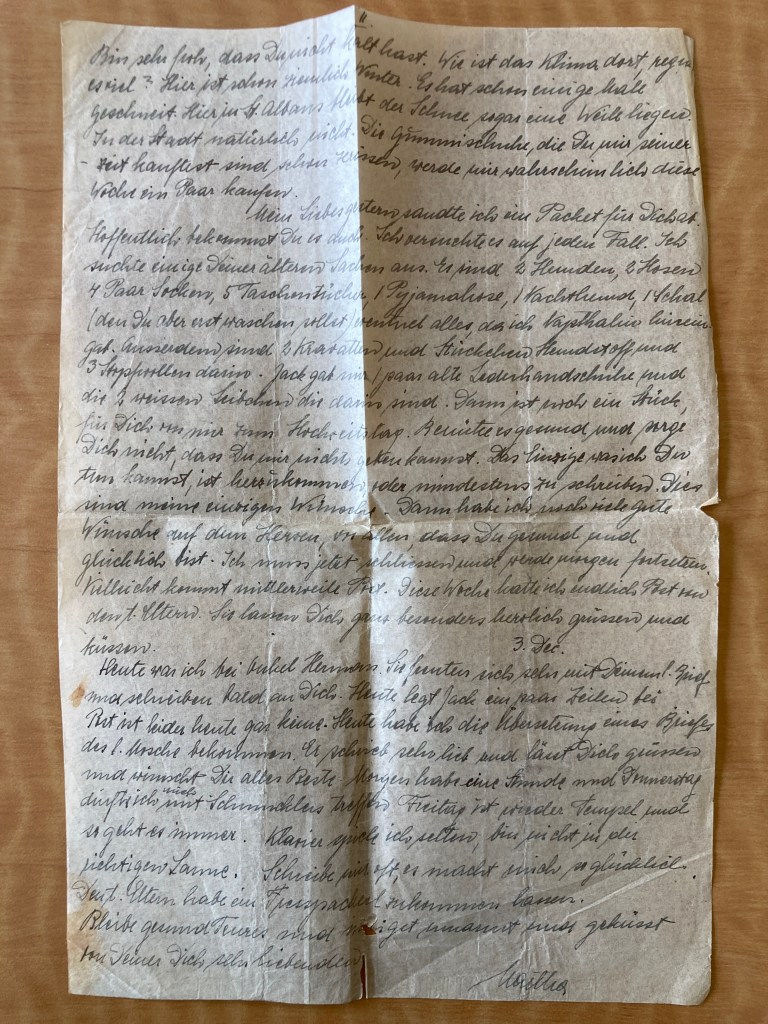 Bin sehr froh, dass Du nicht kalt hast. Wie ist das Klima dort, regn
es viel? Hier ist schon ziemlich Winter. Es hat schon einige male
geschneit. Hier in St. Albans bleibt der Schnee sogar eine Weile liegen.
In der Stadt natürlich nicht. Die Gummischuhe, die Du mir seiner
- zeit kauftest sind schon zerrissen, werde mir wahrscheinlich diese
Woche ein Paar kaufen.
Mein Liebes gestern sandte ich ein Packet für Dich ab.
Hoffentlich bekommst Du es auch. Ich versuchte es auf jeden Fall. Ich
suchte einige Deiner ältern Sachen aus. Es sind 2 Hemden, 2 Hosen
4 Paar Socken, 5 Taschentücher, 1 Pyjamahose, 1 Nachthemd, 1 Schal
(den Du aber erst waschen sollst) eventuel alles, da ich Napthalin hinein
gab. Ausserdem sind 2 Krawatten und Stückchen Hemdstoff und
3 Stopfwollen darin. Jack gab mir 1 paar alte Lederhandschuhe und
die 2 weissen Leibchen die darin sind. Dann ist noch ein Stück,
für Dich von mir zum Hochzeitstag. Benütze es gesund und sorge
Dich nicht, dass Du mir nichts geben kannst. Das Einzige was ich Du
tun kannst, ist herzukommen oder mindestens zu schreiben. Dies
sind meine einzigen Wünsche. Dann habe ich noch viele gute
Wünsche auf dem Herzen, vor allen, dass Du gesund und
glücklich bist. Ich muss jetzt schliessen und werde morgen fortsetzen.
Villeicht kommt mittlerweile Post. Diese Woche hatte ich endlich Post von
den l. Eltern. Sie lassen Dich ganz besonders herzlich grüssen und
küssen.
3. Dec.
Heute war ich bei Onkel Hermann. Sie freuten sich sehr mit Deinem l. Brief
und schreiben bald an Dich. Heute legt Jack ein paar Zeilen bei
Post ist leider heute gar keine. Heute habe ich die Übersetzung eines Briefes
des l. Mosche bekommen. Er schrieb sehr lieb und lässt Dich grüssen
und wünscht Dir alles Beste. Morgen habe eine Stunde und Donnerstag
dürfte ich mich mit Schmucklers treffen. Freitag ist wieder Tempel und
so geht es immer. Klavier spiele ich selten, bin nicht in der
richtigen Laune. Schreibe mir oft es macht mich so glücklich.
Den l. Eltern habe ein Fresspackerl zukommen lassen.
Bleibe gesund Teures und innigst umarmt und geküsst
von Deiner Dich sehr liebenden